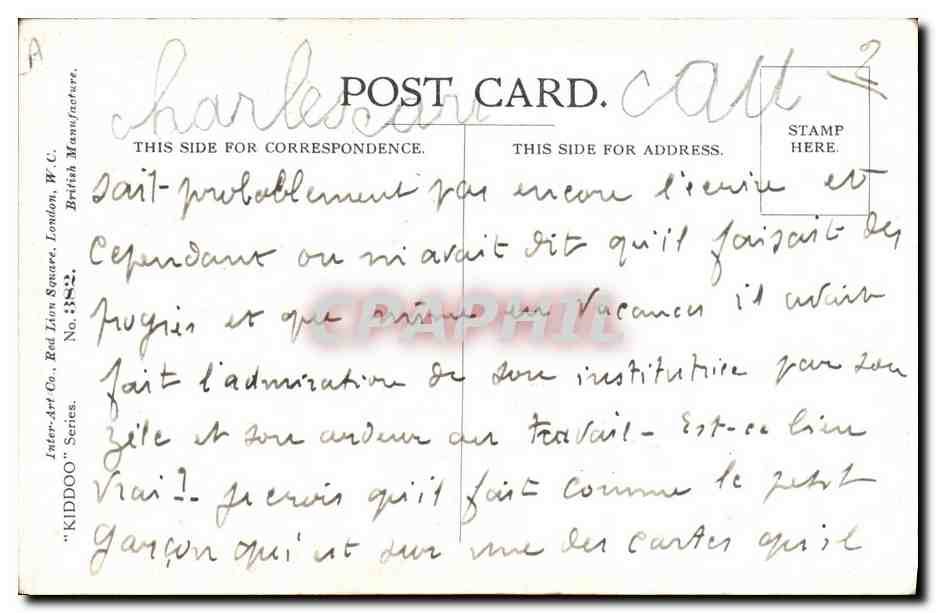 A
2
Charles Carr CAU
POST CARD.
THIS SIDE FOR CORRESPONDENCE.
THIS SIDE FOR ADDRESS.
STAMP
HERE.
sait-probablement pas encore l'écrire et
Cependant on m'avait dit qu'il faisait des
progrès et que même en Vacances il avait
fait l'admiration de son institutrice par son
zèle et son ardeur au travail - Est-ce bien
Vrai? - Je crois qu'il fait comme le petit
garçon qui est sur une des cartes qu'il
"KIDDOO" Series. No. 382. British Manufacture.
Inter-Art Co., Red Lion Square, London, W.C.
CPAPHIL